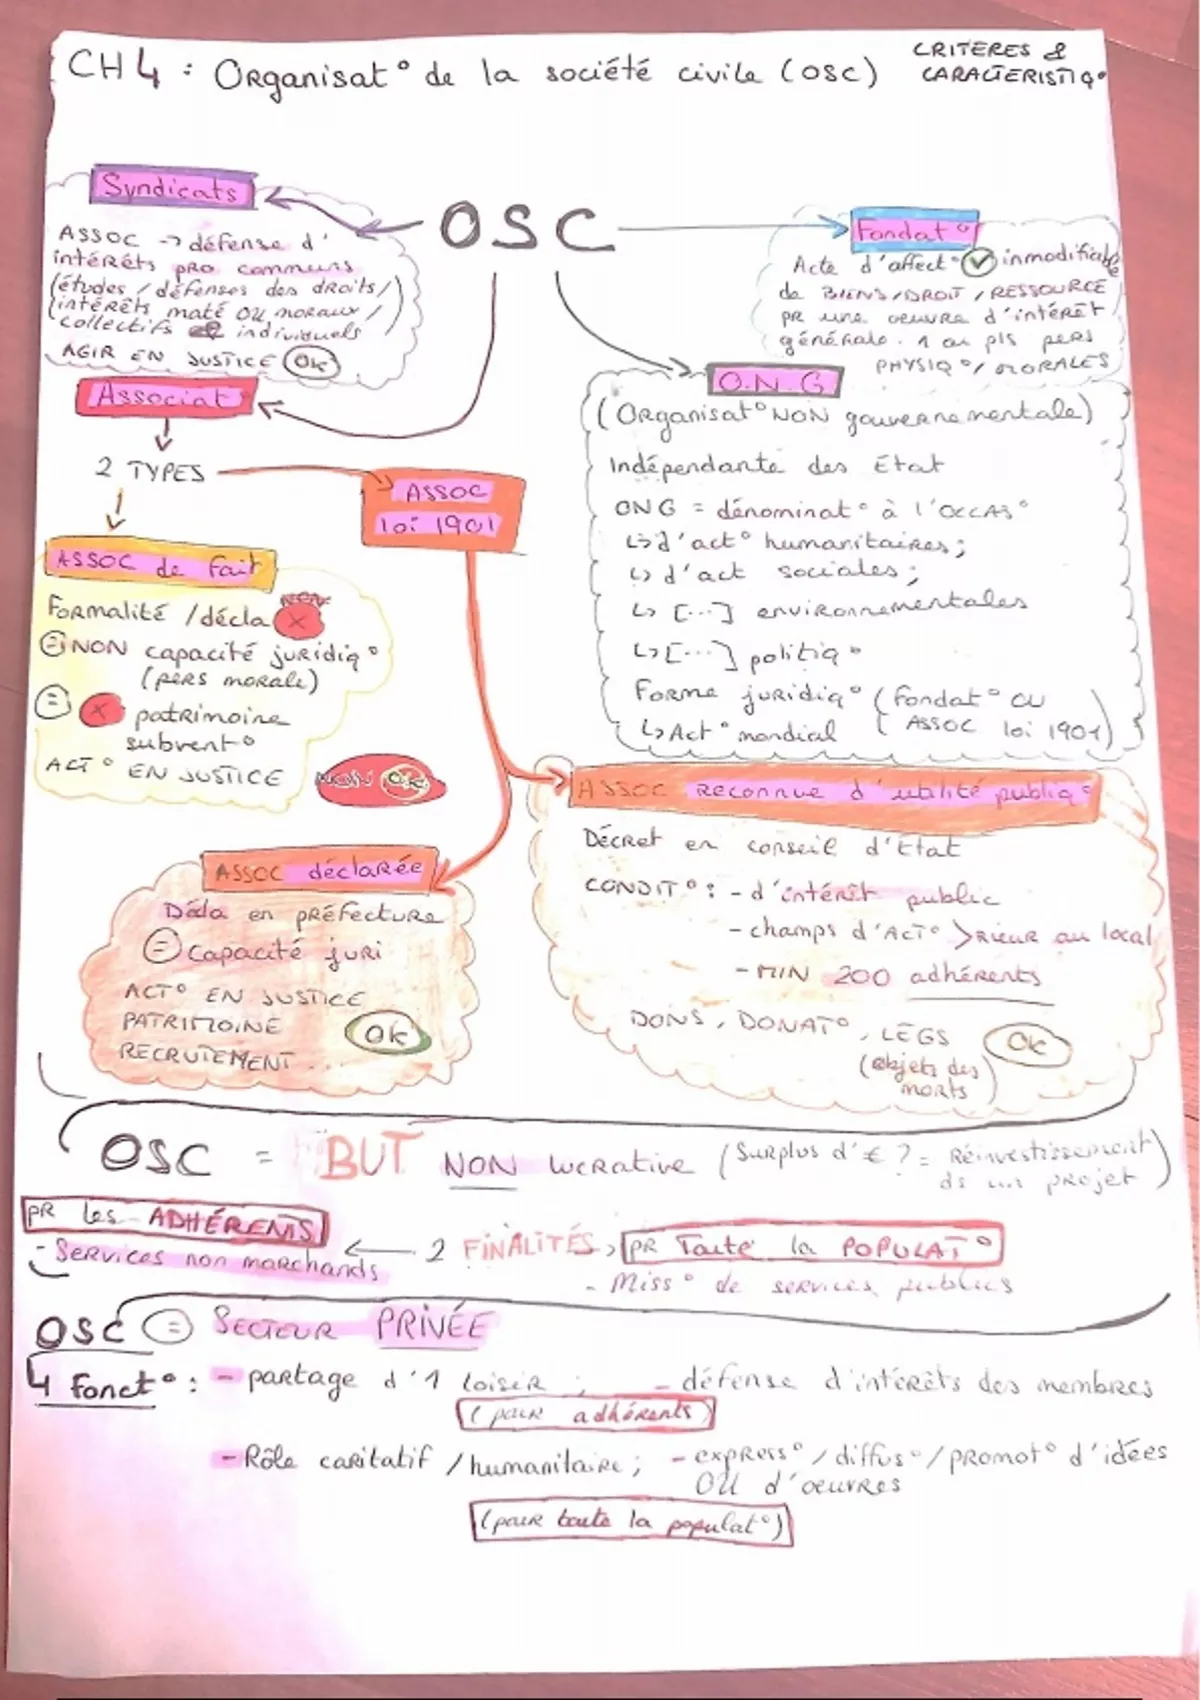 CH4 : Organisat° de la société civile (OSC)
CRITERES &
CARACTERISTIQ°
OSC
Syndicats
ASSOC -> défense d'
intérêts pro communs
(études / défenses des droits /
intérêts maté OU moraux /
collectifs individuels
AGIR EN JUSTICE OK
Fondat°
Acte d'affect° inmodifiable
de BIENS / DROIT / RESSOURCE
pr une oeuvre d'intérêt
générale. 1 ou pls pers
PHYSIQ° / MORALES
O.N.G
(Organisat° NON gouvernementale)
Indépendante des État
ONG = dénominat° à l'OCCAS°
↳ d'act° humanitaires ;
↳ d'act sociales ;
↳ [...] environnementales
↳ [...] politiq°
Forme juridiq° (Fondat° OU
ASSOC loi 1901)
↳ Act° mondial
Associat°
2 TYPES
ASSOC
loi 1901
ASSOC de fait
Formalité / décla NON X
= NON capacité juridiq°
(pers morale)
= X patrimoine
subvent°
ACT° EN JUSTICE NON OK
ASSOC déclarée
Décla en préfecture
= capacité juri
ACT° EN JUSTICE
PATRIMOINE
RECRUTEMENT ...
OK
ASSOC reconnue d'utilité publiq°
Décret en conseil d'État
CONDIT° : - d'intérêt public
- champs d'ACT° >rieur au local
- MIN 200 adhérents
DONS, DONAT°, LEGS
(objets des
morts)
OK
OSC = BUT NON lucrative (Surplus d'€ ? = Réinvestissement
ds un projet)
pr les ADHÉRENTS
- Services non marchands
← 2 FINALITÉS → pr Toute la POPULAT°
- Miss° de services publics
OSC = SECTEUR PRIVÉE
4 fonct° : - partage d'1 loisir ; - défense d'intérêts des membres
(pour adhérents)
- Rôle caritatif / humanitaire ; - express° / diffus° / promot° d'idées
OU d'oeuvres
(pour toute la populat°)